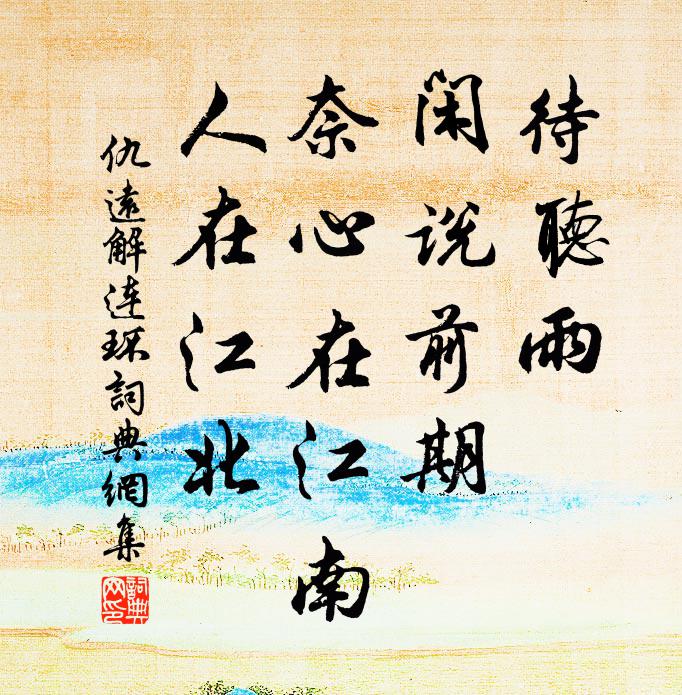 待聽雨
閑說前期
奈心在江南
人在江北
仇遠解連環詞典網集